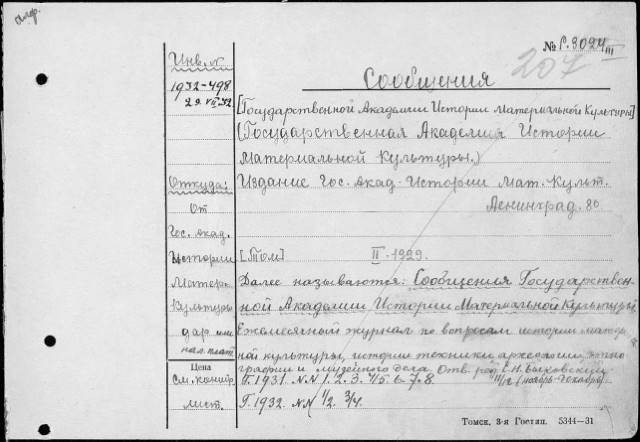 алф.
№ Р.3024 III
207
Инв.№
1932-498
29.VII.32
Сообщения
[Государственной Академии Истории Материальной Культуры]
(Государственная Академия Истории
Материальной Культуры.)
Откуда:
От
Гос. Акад.
Истории
Матерь.
Культуры
дар или
нал. плат
Издание Гос. Акад. Истории Мат. Культ.
Ленинград. 80
[Том] II-1929.
Далее называются: Сообщения Государствен-
ной Академии Истории Материальной Культуры
Ежемесячный журнал по вопросам истории матери-
ной культуры, истории техники археологии, этно-
графии и музейного дела Отв. ред. С.Н. Быковский
Цена
См. контр.
лист.
Г. 1931. NN 1. 2. 3. 4/5. 6. 7. 8. 11/12 (ноябрь-декабрь)
Г. 1932. NN 1/2. 3/4.
Томск, 3-я Гостип. 5344—31